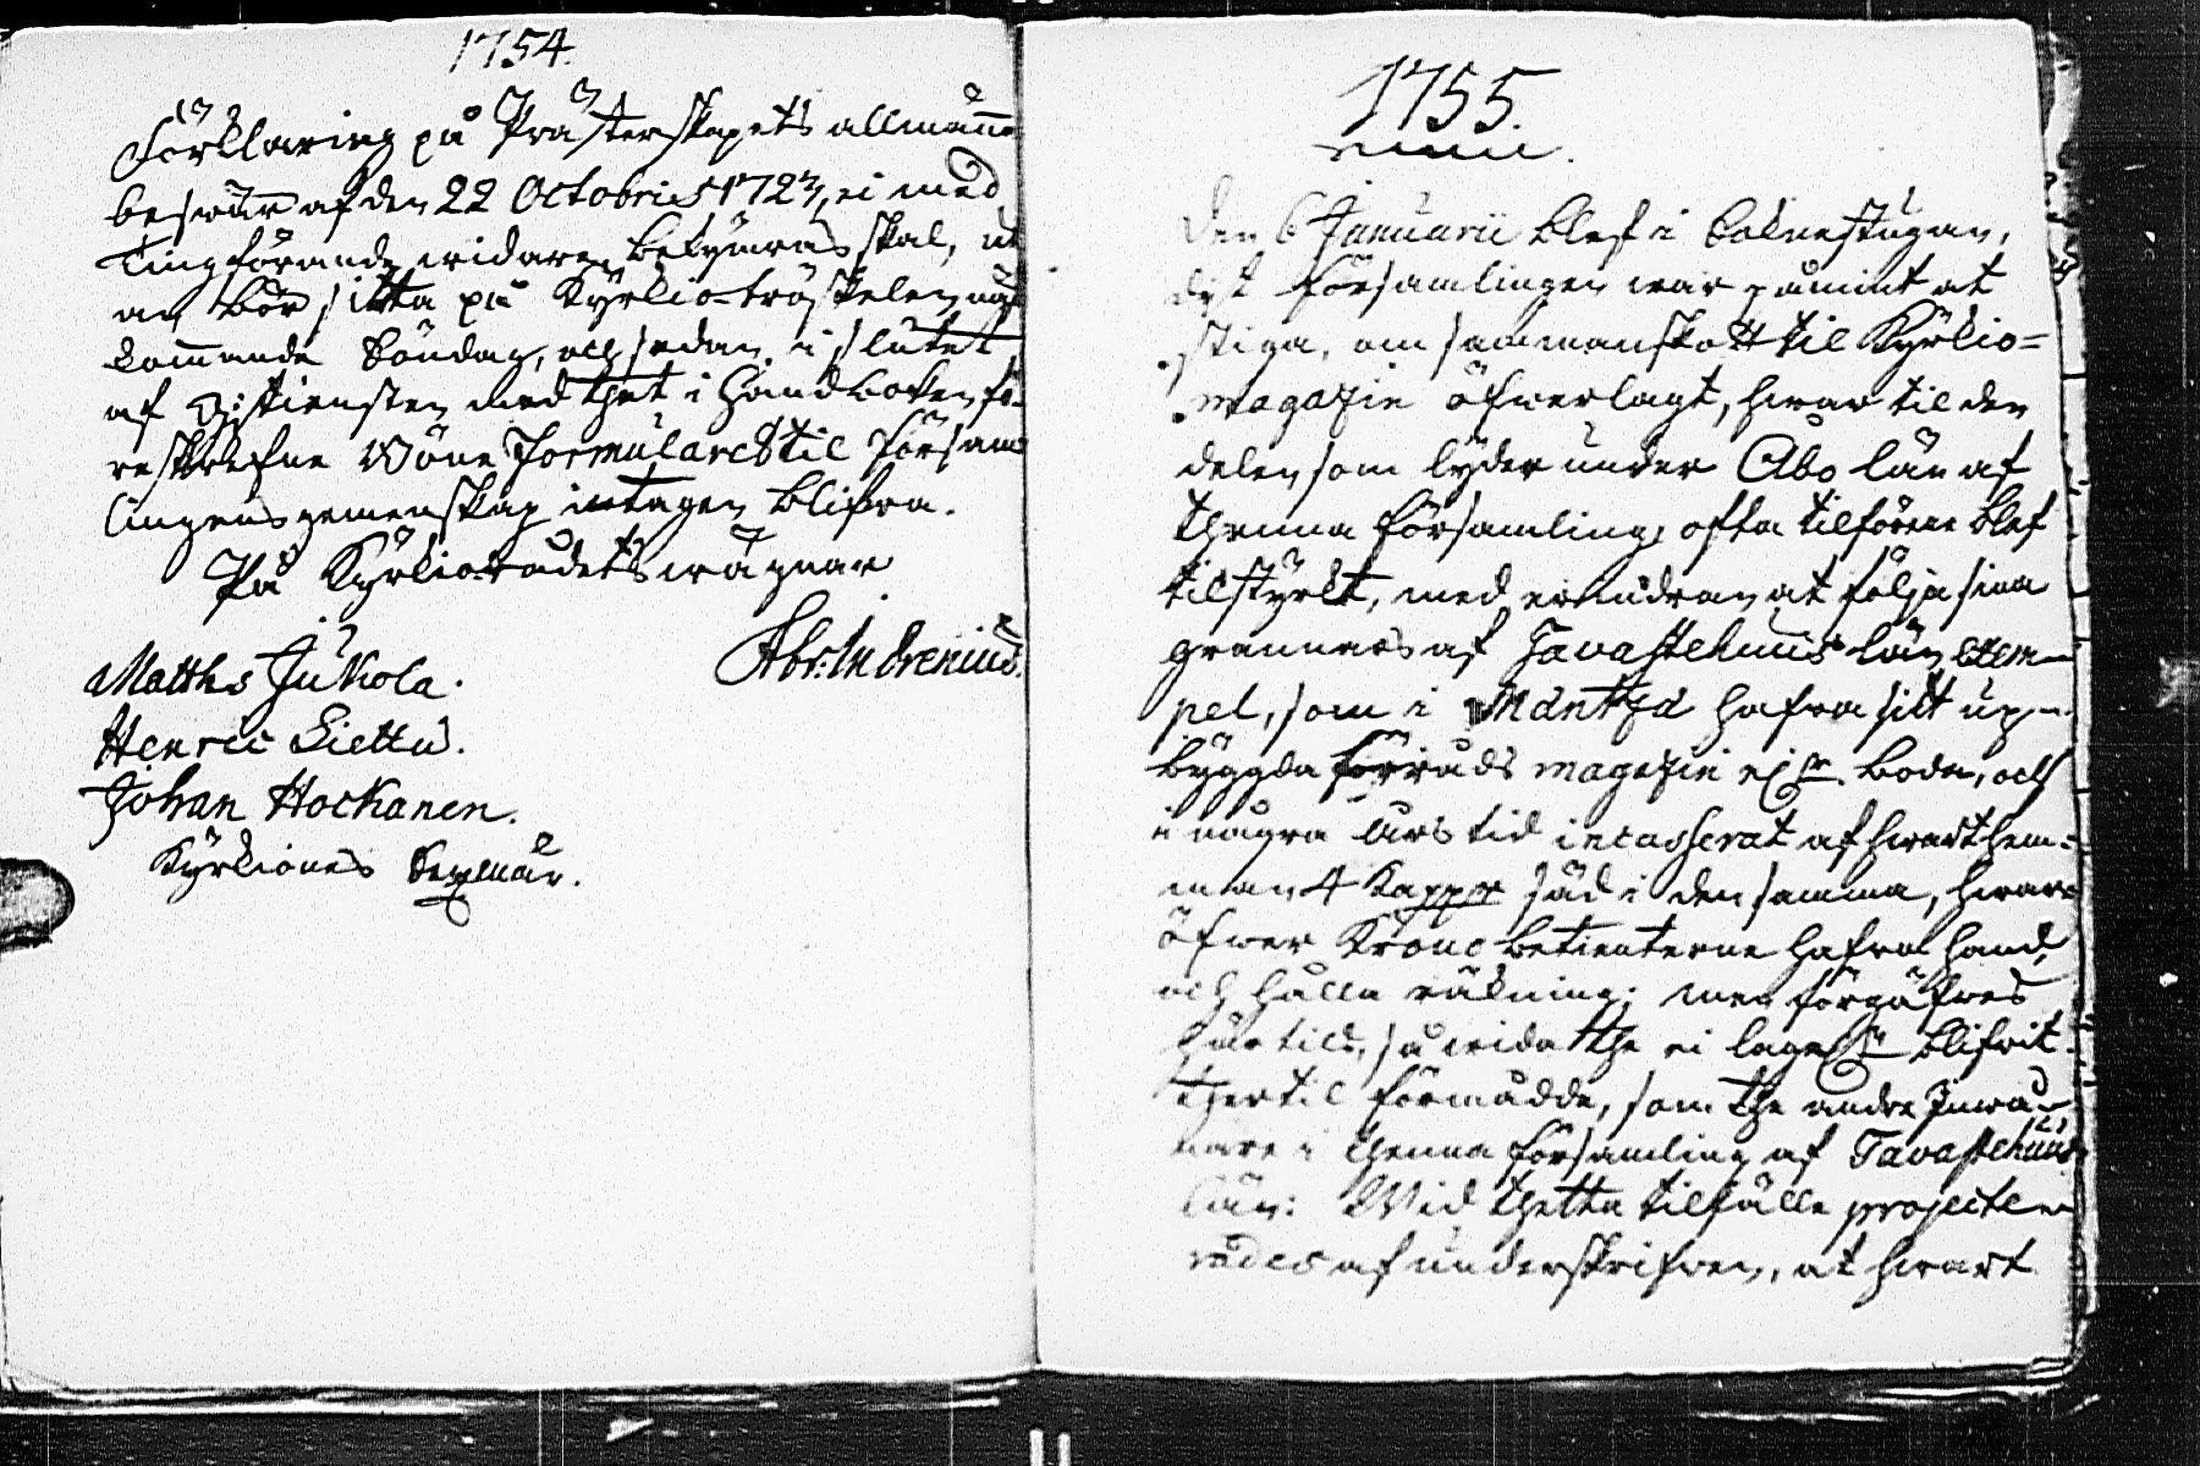 1754.
Förklaring på Prästerskapets allmänna
beswär af den 22 Octobris 1723, ei med
Tingförande widare bekymras skal, ut
an bör sitta på Kyrkio-tröskelen näst
kommande Söndag, och sedan i slutet
af Gudztiensten med thet i Handboken fö-
reskrefne Wöne Formularet til Försam
lingens gemenskap intagen blifwa.
På Kyrkiorådets wägnar
Abr: Indrenius.
Matths Jukkola.
Henric Liettu.
Johan Hockanen.
Kyrkiones Sexmän.
1755.
Den 6 Januarii blef i Soknestugan,
dyt Församlingen war påmint at
stiga, om sammanskott til Kyrkio=
magazin öfwerlagt, hwar til den
delen som lyder under Åbo län af
thenna Församling, ofta tilförene blef
tilstyrkt, med ermidran at följa sina
grannars af Tavastehuus län exem-
pel, som i Mäntzä hafwa sitt up-
bygda förråds magazin ell:r boda, och
i några års tid incasserat af hwart hem=
man 4 Kappor säd i den samma, hwar-
öfwer Krono betienterne hafwa hand,
och hålla räkning; men förgäfwes
här tils, så wida the ei lagel:n blifwit
thertil förmådde, som the andre Inwå-
nare i thenna Församling af Tavastehuus
län: Wid thetta tilfälle projecte-
rades af underskrifwen, at hwart